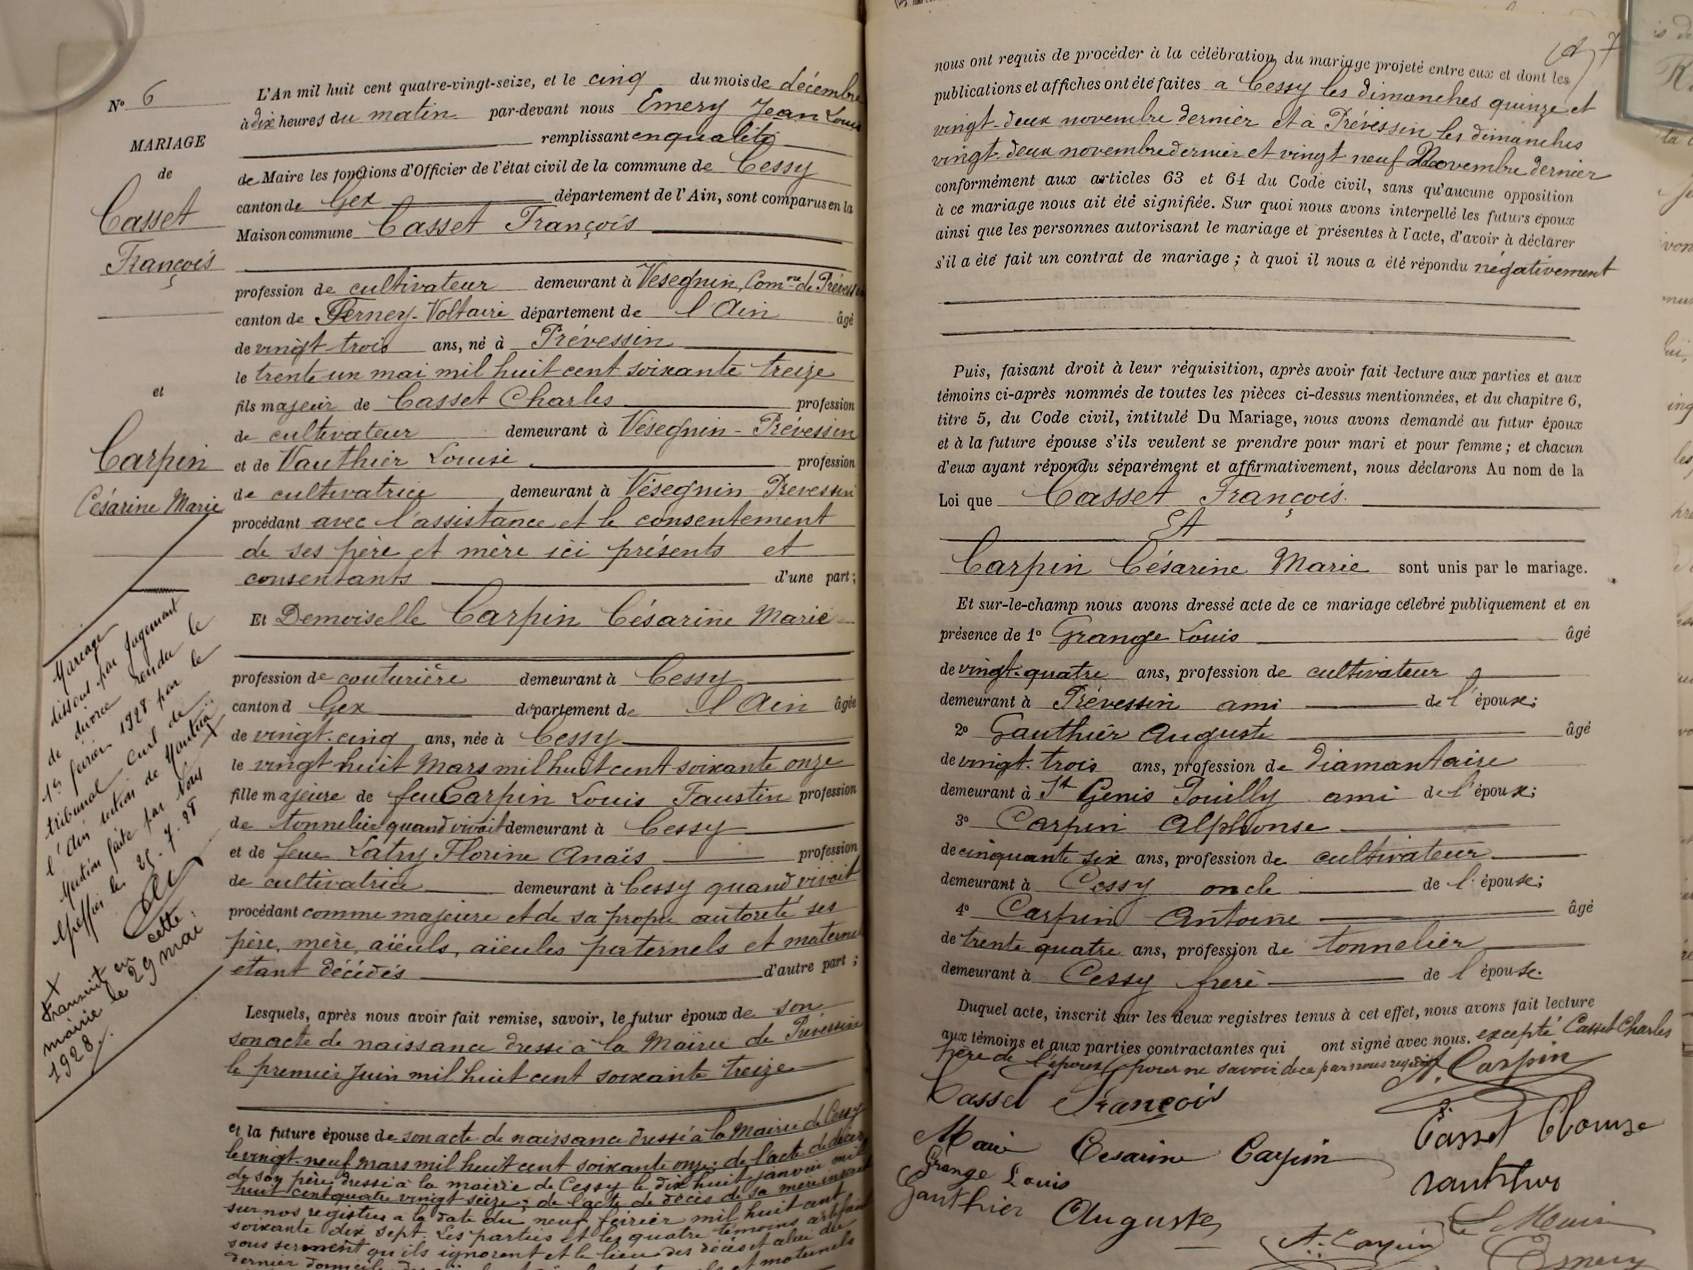 N° 6
MARIAGE
de
Casset
François
et
Carpin
Césarine Marie
Mariage
dissout par jugement
de divorce rendu le
15 février 1928 par le
tribunal Civil de
l'Ain section de Nantua X
Mention faite par Nous
greffier le 25.7.28
X
transcrit en cette
mairie le 29 mai
1928.
L'An mil huit cent quatre-vingt-seize, et le cinq du mois de décembre
à dix heures du matin par-devant nous Emery Jean Louis
remplissant en qualité
de Maire les fonctions d'Officier de l'état civil de la commune de Cessy
canton de Gex département de l'Ain, sont comparus en la
Maison commune Casset François
profession de cultivateur demeurant à Vésegnin, Com.ne de Prévessin
canton de Ferney-Voltaire département de l'Ain âgé
de vingt trois ans, né à Prévessin
le trente un mai mil huit cent soixante treize
fils majeur de Casset Charles profession
de cultivateur demeurant à Vésegnin-Prévessin
et de Vauthier Louise profession
de cultivatrice demeurant à Vésegnin Prévessin
procédant avec l'assistance et le consentement
de ses père et mère ici présents et
consentants d'une part;
Et Demoiselle Carpin Césarine Marie
profession de couturière demeurant à Cessy
canton d Gex département de l'Ain âgée
de vingt-cinq ans, née à Cessy
le vingt huit Mars mil huit cent soixante onze
fille majeure de feu Carpin Louis Faustin profession
de tonnelier quand vivait demeurant à Cessy
et de feue Latry Florine Anaïs profession
de cultivatrice demeurant à Cessy quand vivait
procédant comme majeure et de sa propre autorité ses
père, mère, aïeuls, aïeules paternels et maternels
étant décédés d'autre part;
Lesquels, après nous avoir fait remise, savoir, le futur époux de son
son acte de naissance dressé à la Mairie de Prévessin
le premier Juin mil huit cent soixante treize
et la future épouse de son acte de naissance dressé à la Mairie de Cessy
le vingt-neuf mars mil huit cent soixante onze; de l'acte de décès
de son père dressé à la mairie de Cessy le dix huit janvier mil
huit cent quatre vingt seize; de l'acte de décès de sa mère inscrit
sur nos registres à la date du neuf février mil huit cent
soixante dix sept. Les parties et les quatre témoins
sous serment qu'ils ignorent et le lieu des décès et celui du
dernier domicile et maternels
nous ont requis de procéder à la célébration du mariage projeté entre eux et dont les
publications et affiches ont été faites à Cessy les dimanches quinze et
vingt-deux novembre dernier et à Prévessin les dimanches
vingt-deux novembre dernier et vingt neuf Novembre dernier
conformément aux articles 63 et 64 du Code civil, sans qu'aucune opposition
à ce mariage nous ait été signifiée. Sur quoi nous avons interpellé les futurs époux
ainsi que les personnes autorisant le mariage et présentes à l'acte, d'avoir à déclarer
s'il a été fait un contrat de mariage; à quoi il nous a été répondu négativement
Puis, faisant droit à leur réquisition, après avoir fait lecture aux parties et aux
témoins ci-après nommés de toutes les pièces ci-dessus mentionnées, et du chapitre 6,
titre 5, du Code civil, intitulé Du Mariage, nous avons demandé au futur époux
et à la future épouse s'ils veulent se prendre pour mari et pour femme; et chacun
d'eux ayant répondu séparément et affirmativement, nous déclarons Au nom de la
Loi que Casset François
Et
Carpin Césarine Marie sont unis par le mariage.
Et sur-le-champ nous avons dressé acte de ce mariage célébré publiquement et en
présence de 1° Grange Louis âgé
de vingt-quatre ans, profession de cultivateur
demeurant à Prévessin ami de l'époux;
2° Gauthier Auguste âgé
de vingt-trois ans, profession de diamantaire
demeurant à St Genis Pouilly ami de l'époux;
3° Carpin Alphonse
de cinquante six ans, profession de cultivateur
demeurant à Cessy oncle de l'épouse;
4° Carpin Antoine âgé
de trente quatre ans, profession de tonnelier
demeurant à Cessy frère de l'épouse.
Duquel acte, inscrit sur les deux registres tenus à cet effet, nous avons fait lecture
aux témoins et aux parties contractantes qui ont signé avec nous, excepté Casset Charles
père de l'époux pour ne savoir de ce par nous requis
A. Carpin
Casset François
Casset Clouise
Marie Cesarine Carpin
Grange Louis
Gauthier Auguste
A. Carpin
Le Maire
Emery